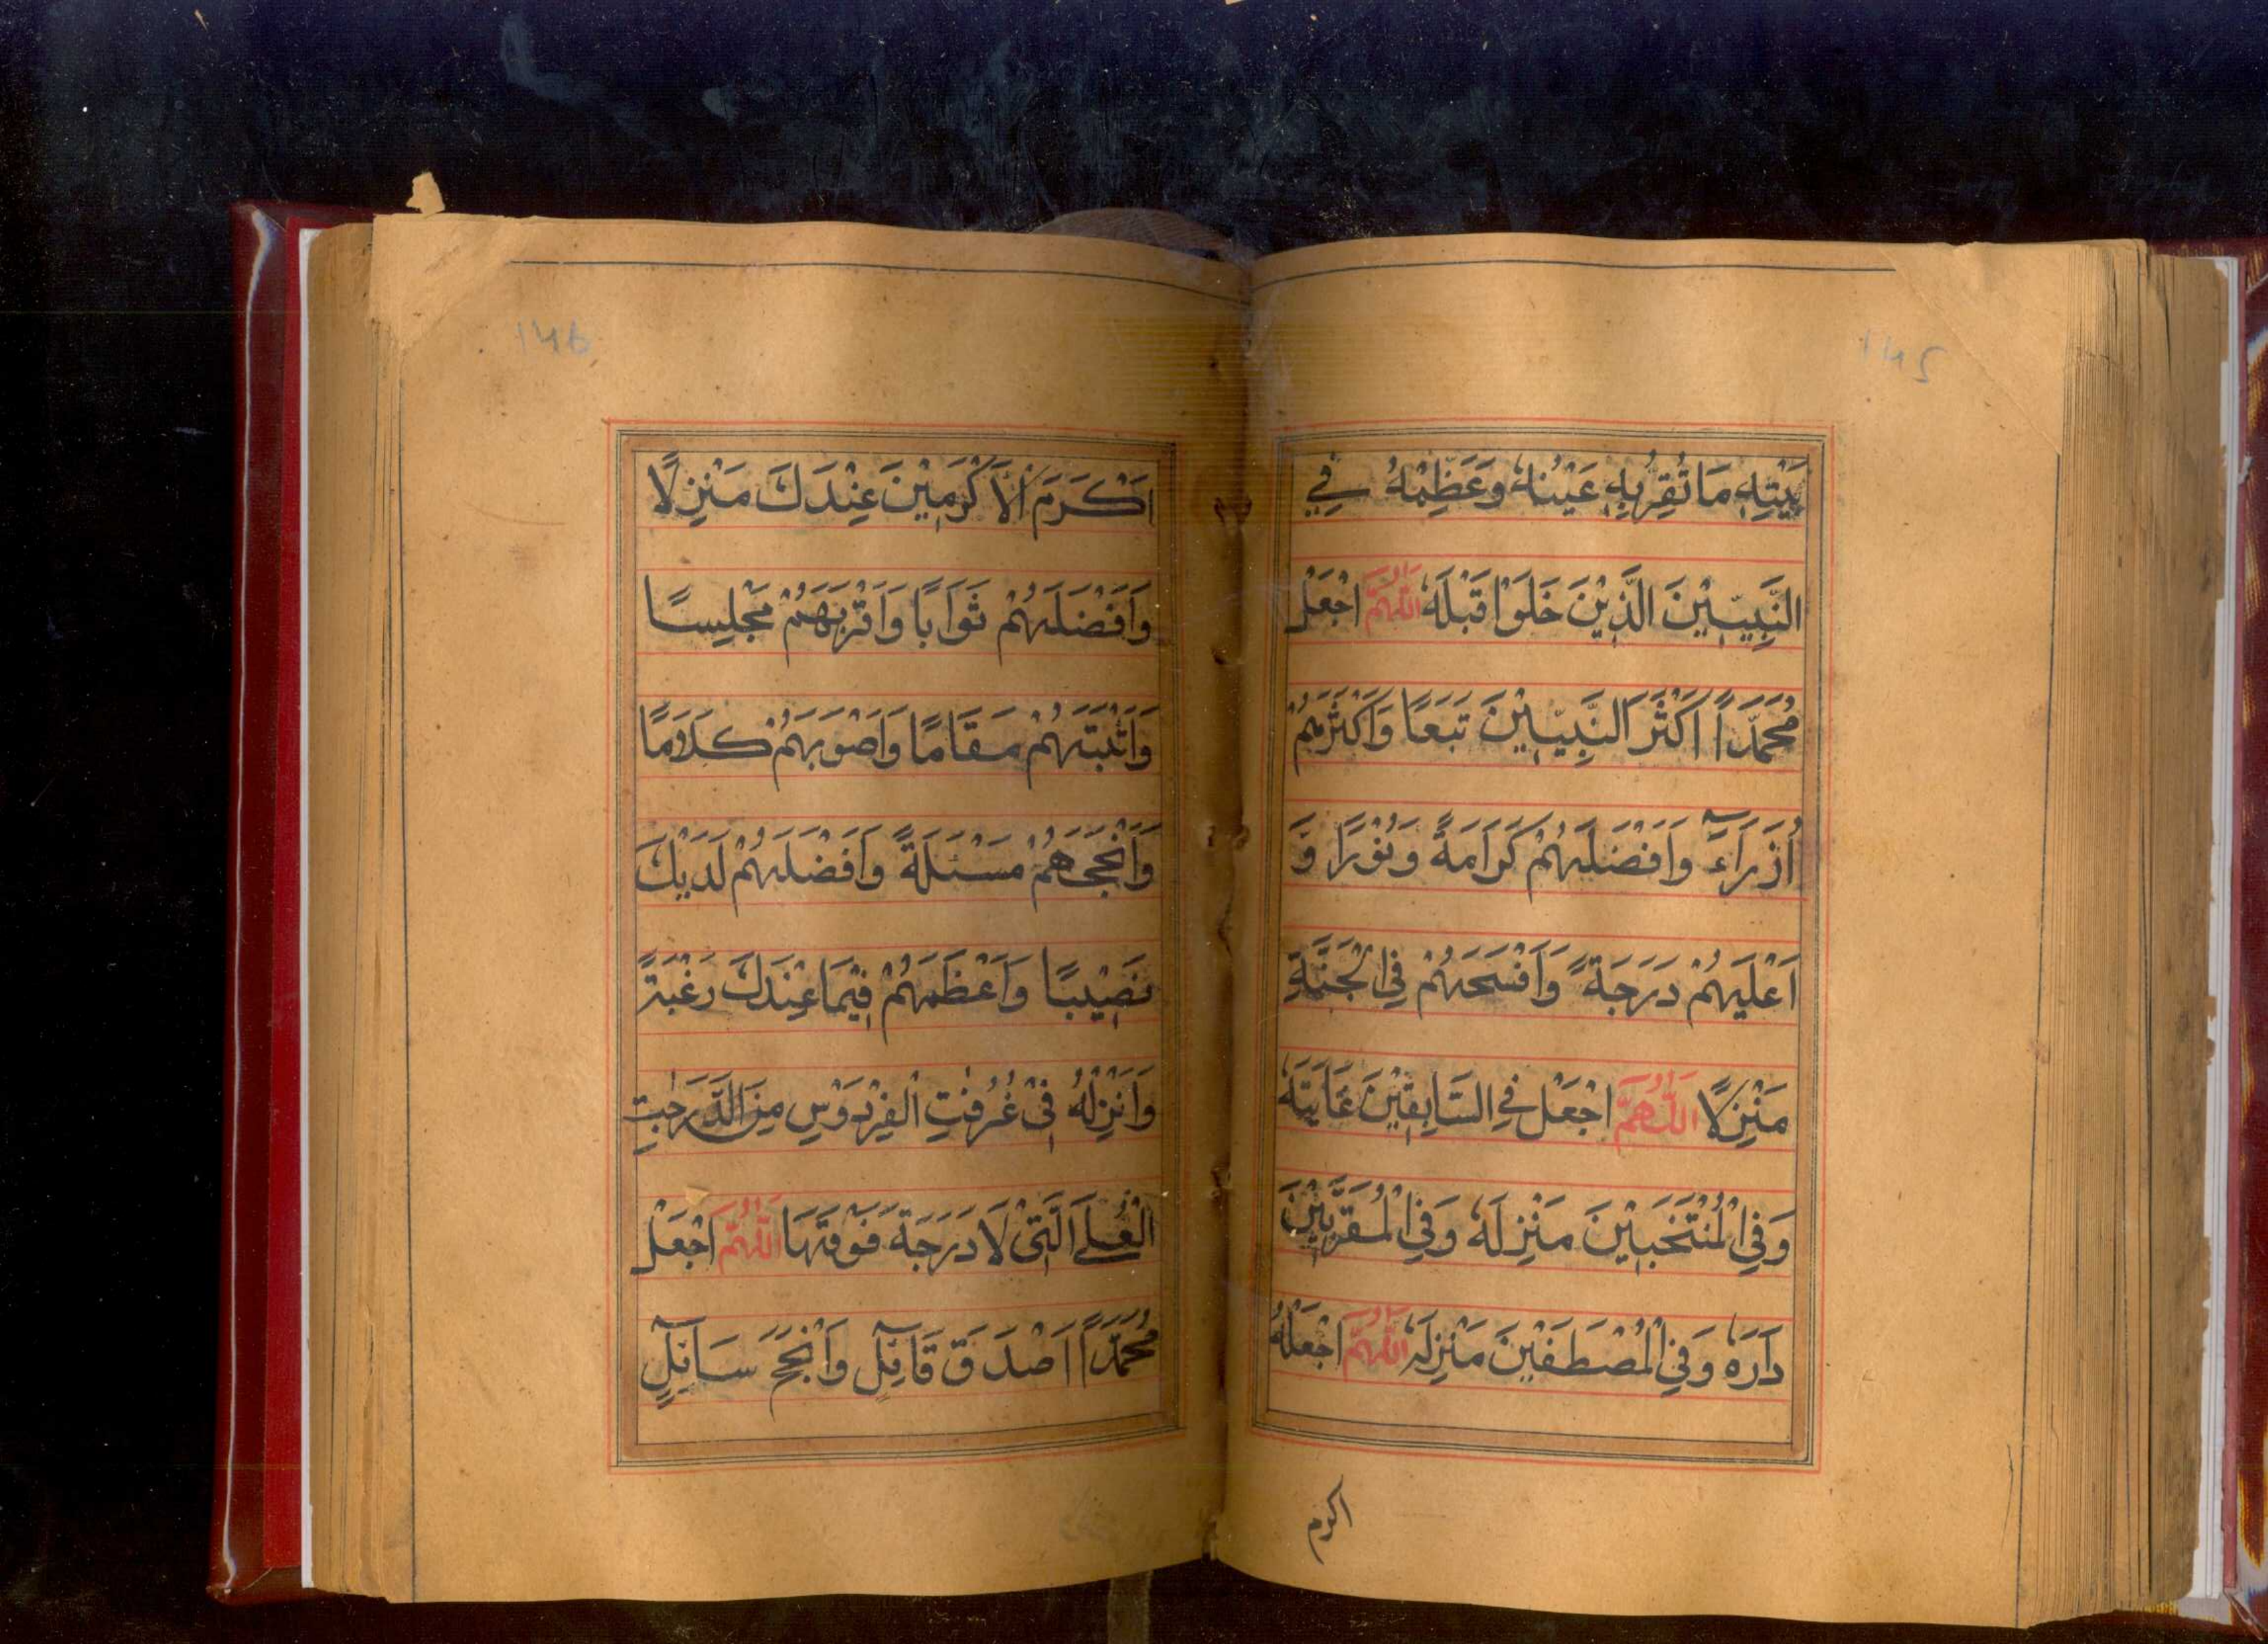 145
بَيْتِهٖ مَا تُقِرُّ بِهٖ عَيْنُهٗ وَعَظِّمْهُ فِي
النَّبِيّٖيْنَ الَّذِيْنَ خَلَوْا قَبْلَهٗ اَللّٰهُمَّ اجْعَلْ
مُحَمَّدًا اَكْثَرَ النَّبِيّٖيْنَ تَبَعًا وَاَكْثَرَهُمْ
اُزَرَآءَ وَاَفْضَلَهُمْ كَرَامَةً وَنُوْرًا وَّ
اَعْلَيهُمْ دَرَجَةً وَاَفْسَحَهُمْ فِي الْجَنَّةِ
مَنْزِلًا اَللّٰهُمَّ اجْعَلْ فِي السَّابِقِيْنَ غَايَتَهٗ
وَفِي الْمُنْتَخَبِيْنَ مَنْزِلَهٗ وَفِي الْمُقَرَّبِيْنَ
دَارَهٗ وَفِي الْمُصْطَفَيْنَ مَنْزِلَهٗ اَللّٰهُمَّ اجْعَلْهُ
اكرم
146
اَكْرَمَ الْاَكْرَمِيْنَ عِنْدَكَ مَنْزِلًا
وَاَفْضَلَهُمْ ثَوَابًا وَاَقْرَبَهُمْ مَجْلِسًا
وَاَثْبَتَهُمْ مَقَامًا وَاَصْوَبَهُمْ كَلَامًا
وَاَنْجَحَهُمْ مَسْئَلَةً وَاَفْضَلَهُمْ لَدَيْكَ
نَصِيْبًا وَاَعْظَمَهُمْ فِيْمَا عِنْدَكَ رَغْبَةً
وَاَنْزِلْهُ فِيْ غُرُفٰتِ الْفِرْدَوْسِ مِنَ الدَّرَجٰتِ
الْعُلَى الَّتِيْ لَا دَرَجَةَ فَوْقَهَا اَللّٰهُمَّ اجْعَلْ
مُحَمَّدًا اَصْدَقَ قَآئِلٍ وَاَنْجَحَ سَآئِلٍ